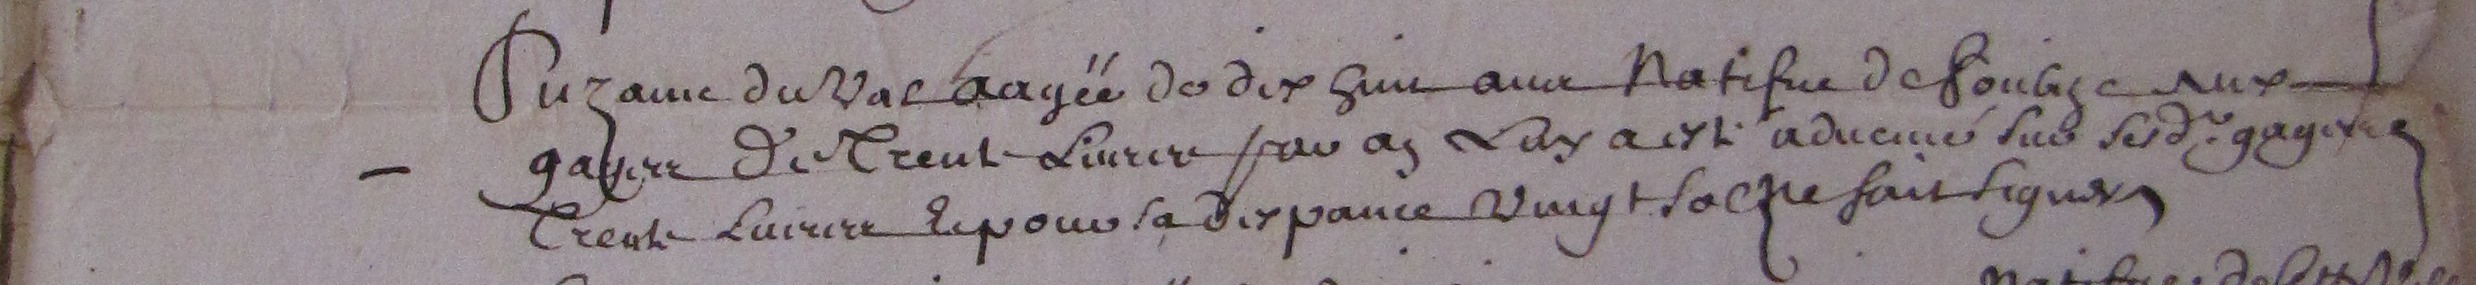 Suzanne du Val aagée de dix huit ans Natifve de aux
gages de Trente Livres par an Luy a esté advancé sur sesd. gages
Trente Livres Et pour sa Dispance Vingt sols ne sait signer